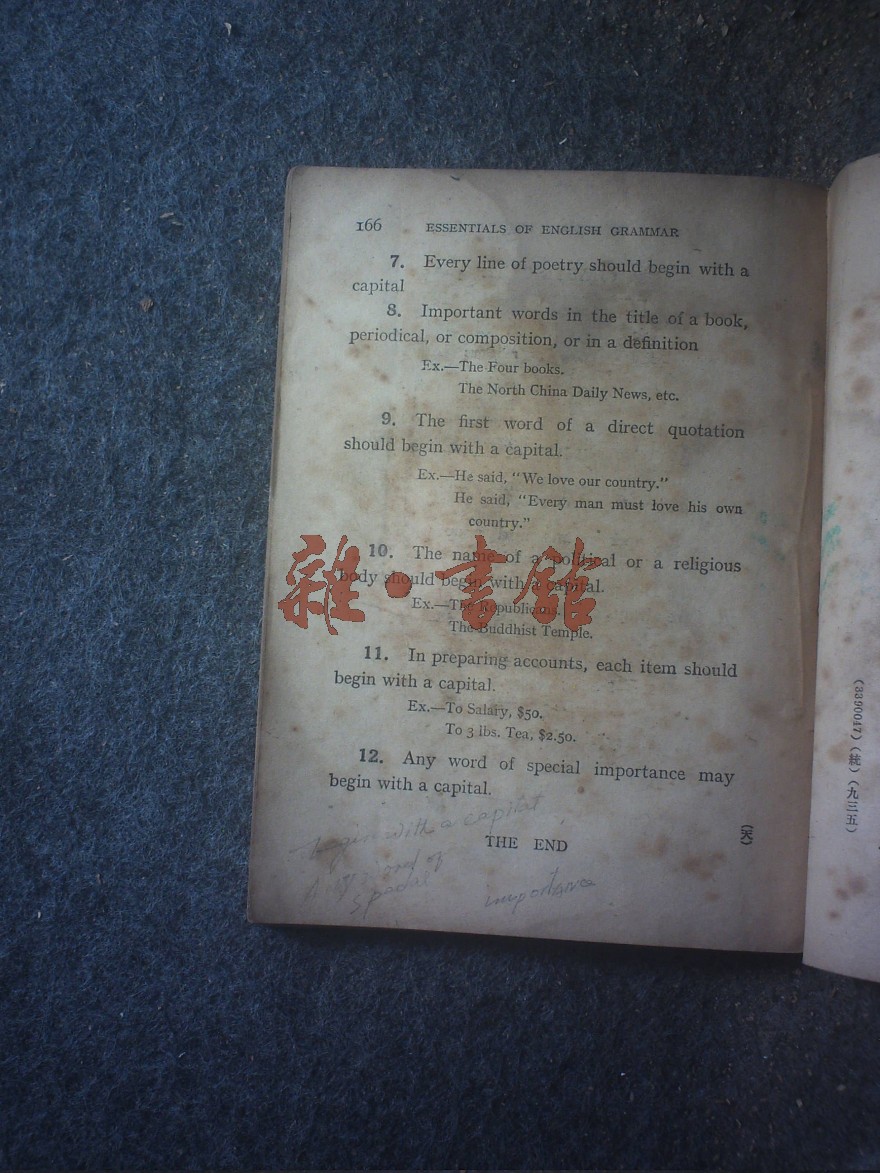 166 ESSENTIALS OF ENGLISH GRAMMAR
7. Every line of poetry should begin with a
capital
8. Important words in the title of a book,
periodical, or composition, or in a definition
Ex.—The Four books.
The North China Daily News, etc.
9. The first word of a direct quotation
should begin with a capital.
Ex.—He said, "We love our country."
He said, "Every man must love his own
country."
10. The name of a political or a religious
body should begin with a capital.
Ex.—The Republicans.
The Buddhist Temple.
雜·書館
11. In preparing accounts, each item should
begin with a capital.
Ex.—To Salary, $50.
To 3 lbs. Tea, $2.50.
12. Any word of special importance may
begin with a capital.
begin with a capital
THE END
(天)
Any word of
special
importance
(3390047)(統)(九三五)